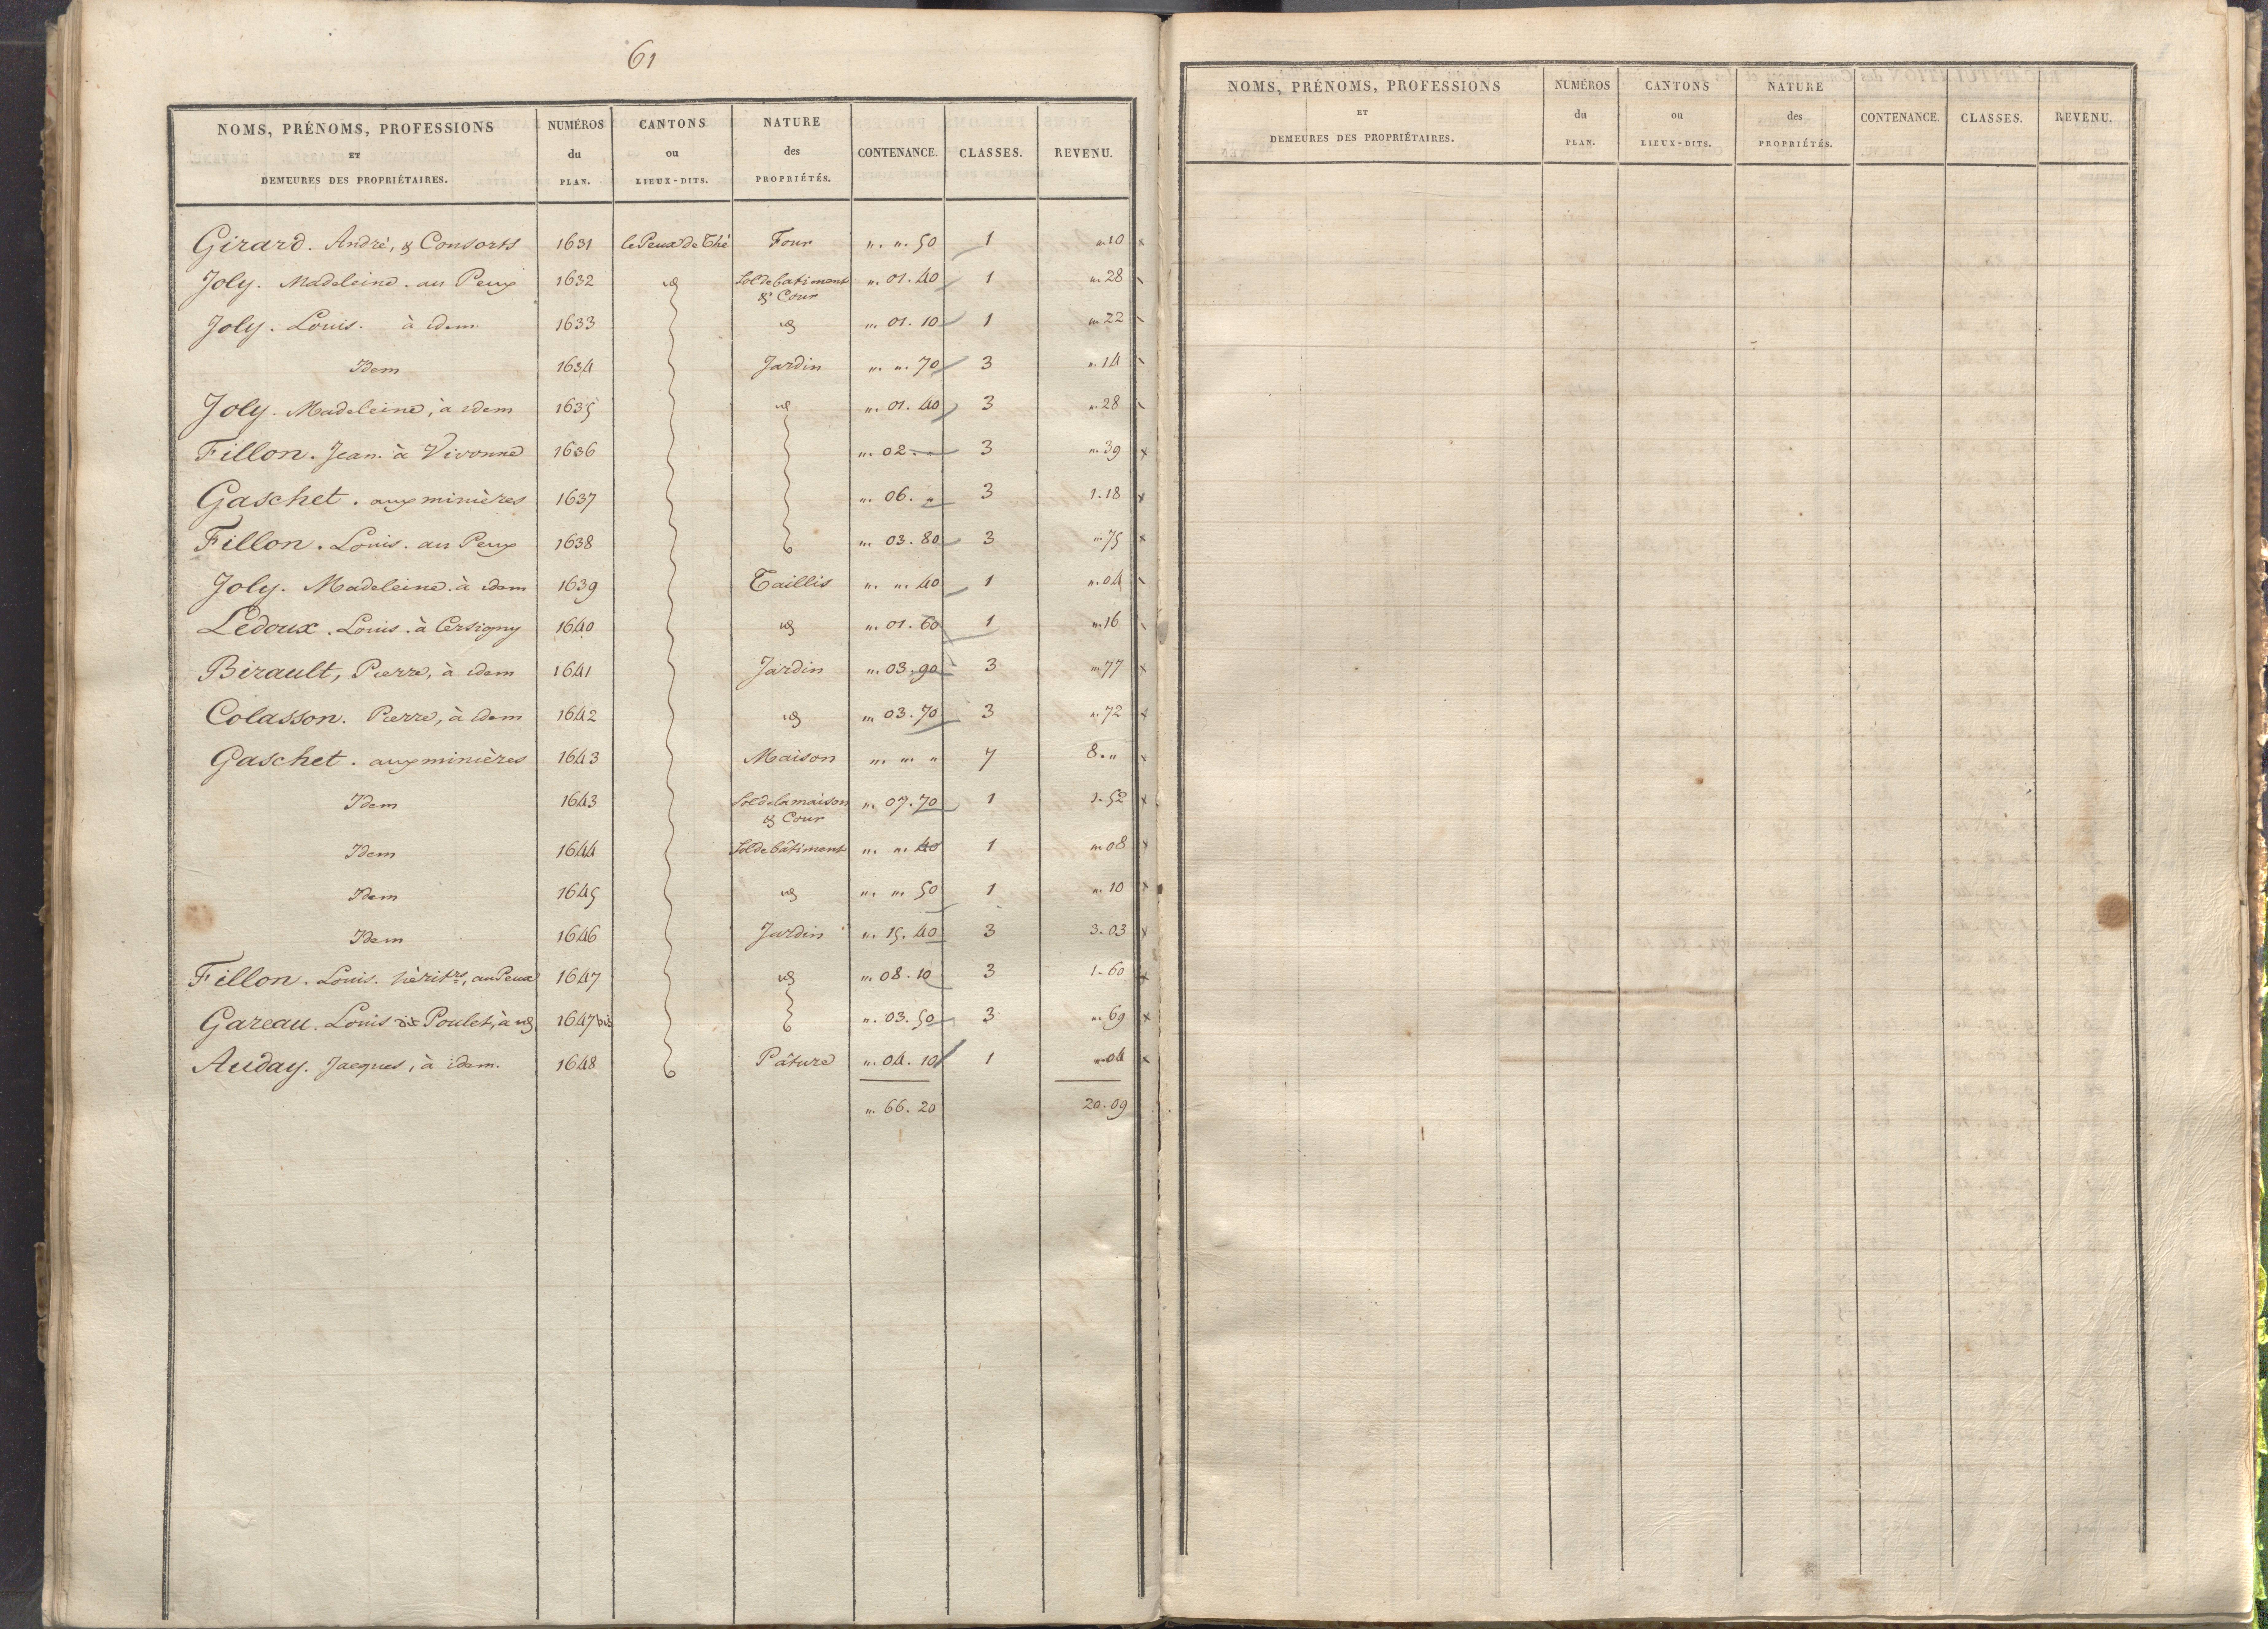 61
NOMS, PRÉNOMS, PROFESSIONS ET DEMEURES DES PROPRIÉTAIRES. NUMÉROS du PLAN. CANTONS ou LIEUX-DITS. NATURE des PROPRIÉTÉS. CONTENANCE. CLASSES. REVENU.
Girard. André, & Consorts 1631 le Peux de Thé Four " . " . 50 1 " . 10
Joly. Madeleine. au Peux 1632 id Sol de batiment & Cour " . 01 . 40 1 " . 28
Joly. Louis. à idem 1633 id " . 01 . 10 1 " . 22
Idem 1634 Jardin " . " . 70 3 " . 14
Joly. Madeleine, à idem 1635 id " . 01 . 40 3 " . 28
Fillon. Jean. à Vivonne 1636 " . 02 . " 3 " . 39
Gaschet. aux minières 1637 " . 06 . " 3 1 . 18
Fillon. Louis. au Peux 1638 " . 03 . 80 3 " . 75
Joly. Madeleine. à idem 1639 Taillis " . " . 40 1 " . 04
Ledoux. Louis. à Cersigny 1640 id " . 01 . 60 1 " . 16
Birault, Pierre, à idem 1641 Jardin " . 03 . 90 3 " . 77
Colasson. Pierre, à idem 1642 id " . 03 . 70 3 " . 72
Gaschet. aux minières 1643 Maison " . " . " 7 8 . "
Idem 1643 Sol de la maison & Cour " . 07 . 70 1 1 . 52
Idem 1644 Sol de bâtiment " . " . 40 1 " . 08
Idem 1645 id " . " . 50 1 " . 10
Idem 1646 Jardin " . 15 . 40 3 3 . 03
Fillon. Louis. hérit.rs, au Peux 1647 id " . 08 . 10 3 1 . 60
Gareau. Louis dit Poulet, à id 1647 bis " . 03 . 50 3 " . 69
Auday. Jacques, à idem. 1648 Pâture " . 04 . 10 1 " . 04
" . 66 . 20 20 . 09
NOMS, PRÉNOMS, PROFESSIONS ET DEMEURES DES PROPRIÉTAIRES. NUMÉROS du PLAN. CANTONS ou LIEUX-DITS. NATURE des PROPRIÉTÉS. CONTENANCE. CLASSES. REVENU.